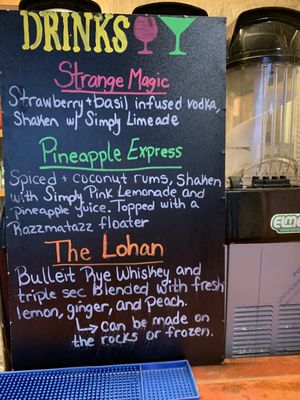 DRINKS
Strange Magic
Strawberry + basil infused vodka,
Shaken w/ Simply Limeade
Pineapple Express
Spiced + coconut rums, Shaken
with Simply Pink Lemonade and
pineapple juice. Topped with a
Razzmatazz floater
The Lohan
Bulleit Rye Whiskey and
triple sec Blended with fresh
lemon, ginger, and Peach.
↳ can be made on
the rocks or frozen.
ELME